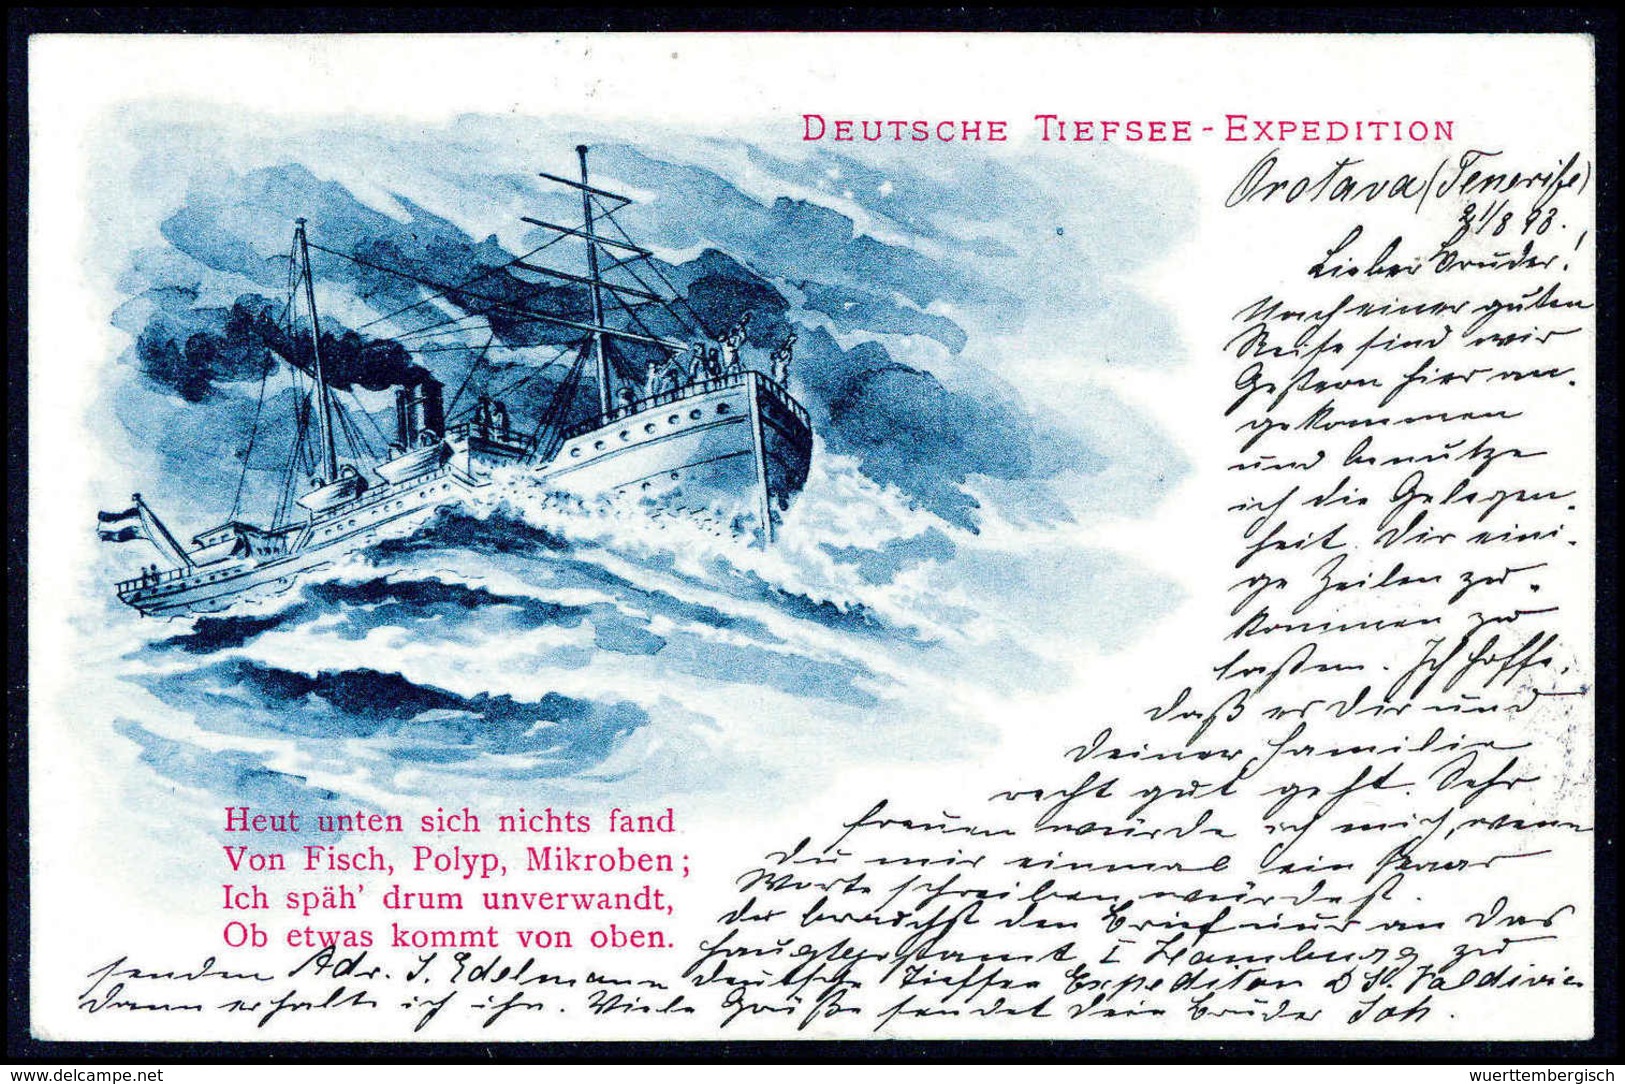 DEUTSCHE TIEFSEE-EXPEDITION
Orotava (Teneriffe)
21/8 98.
Lieber Bruder!
Nach einer guten
Reise sind wir
Gestern hier an-
gekommen
und benutze
ich die Gelegen-
heit Dir eini-
ge Zeilen zu-
kommen zu
laßen. Ich hoffe,
daß es Dir und
Deiner Familie
recht gut geht. Sehr
freuen würde ich mich, wenn
Du mir einmal ein Paar
Worte schreiben würdest.
Du brauchst den Brief nur an Das
Hauptpostamt I Hamburg zu
senden Adr. J. Edelmann Deutsche Tieffee Expedition D S. Valdivia
Dann erhalte ich ihn. Viele Grüße sendet Dein Bruder Joh.
Heut unten sich nichts fand
Von Fisch, Polyp, Mikroben;
Ich späh' drum unverwandt,
Ob etwas kommt von oben.
delcampe.net
wuerttembergisch